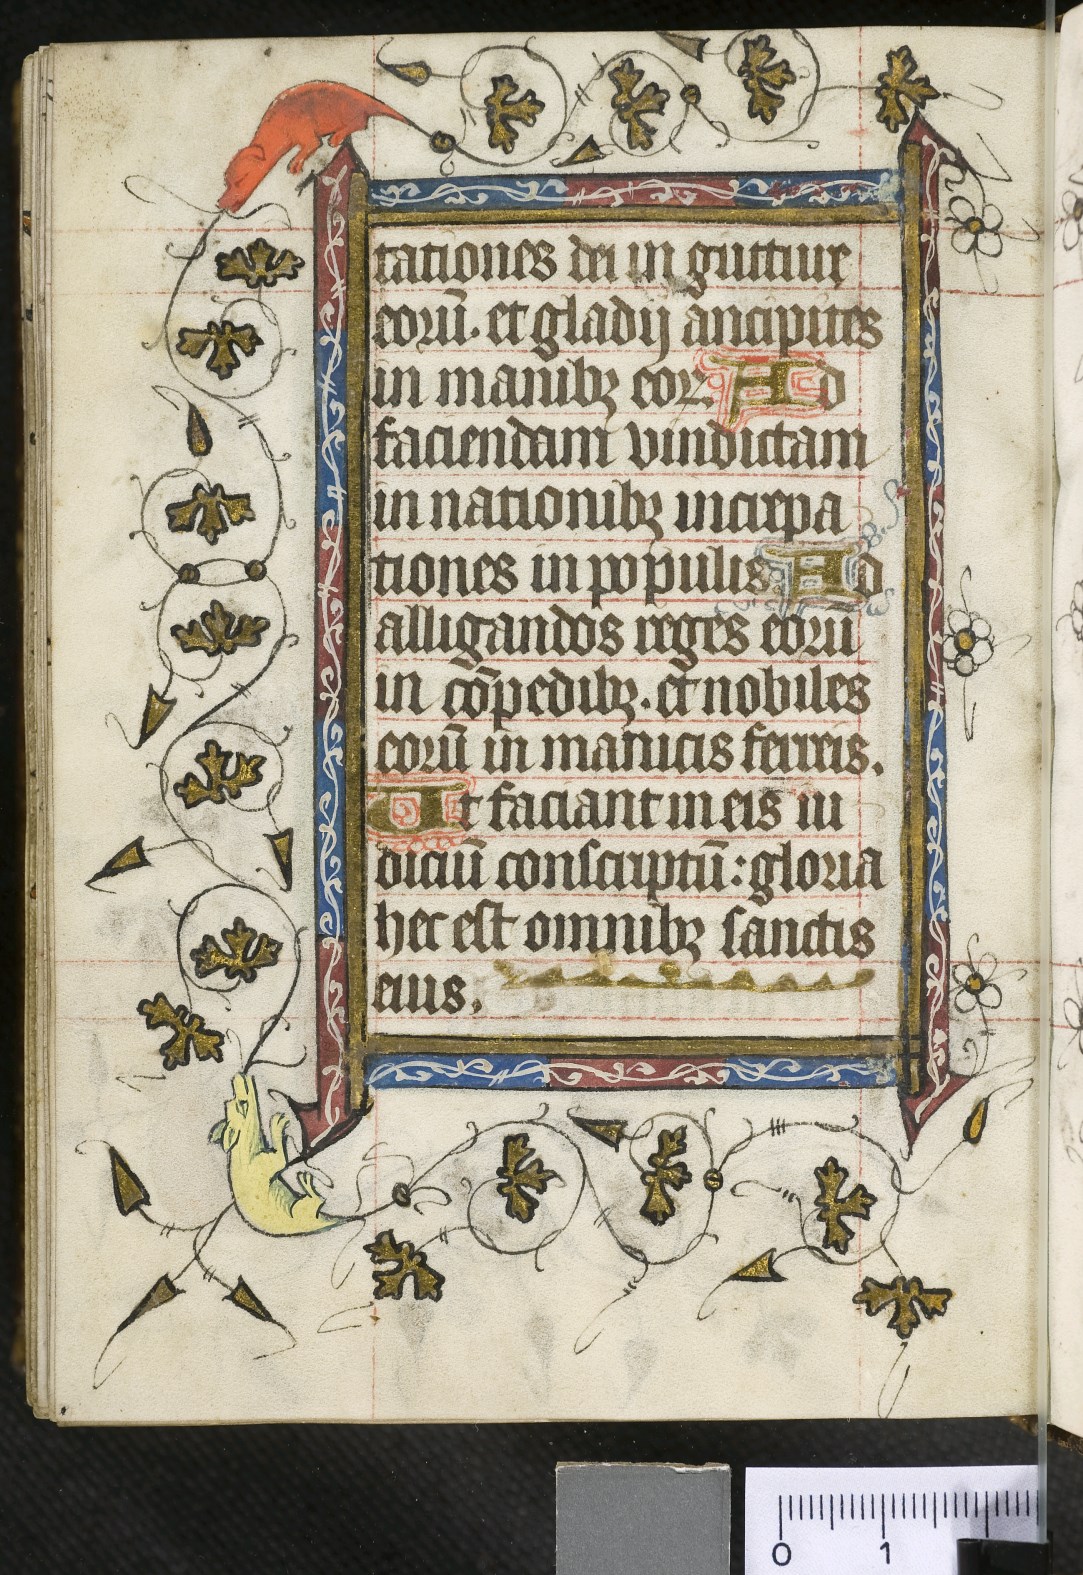 tationes dei in gutture
eorū. et gladij ancipites
in manibꝫ eoꝝ. Ad
faciendam vindictam
in nationibꝫ increpa
tiones in populis Ad
alligandos reges eorū
in cōpedibꝫ. et nobiles
eorū in manicis ferreis.
Ut faciant in eis iu
diciū conscriptū: gloria
hec est omnibꝫ sanctis
eius.
0 1